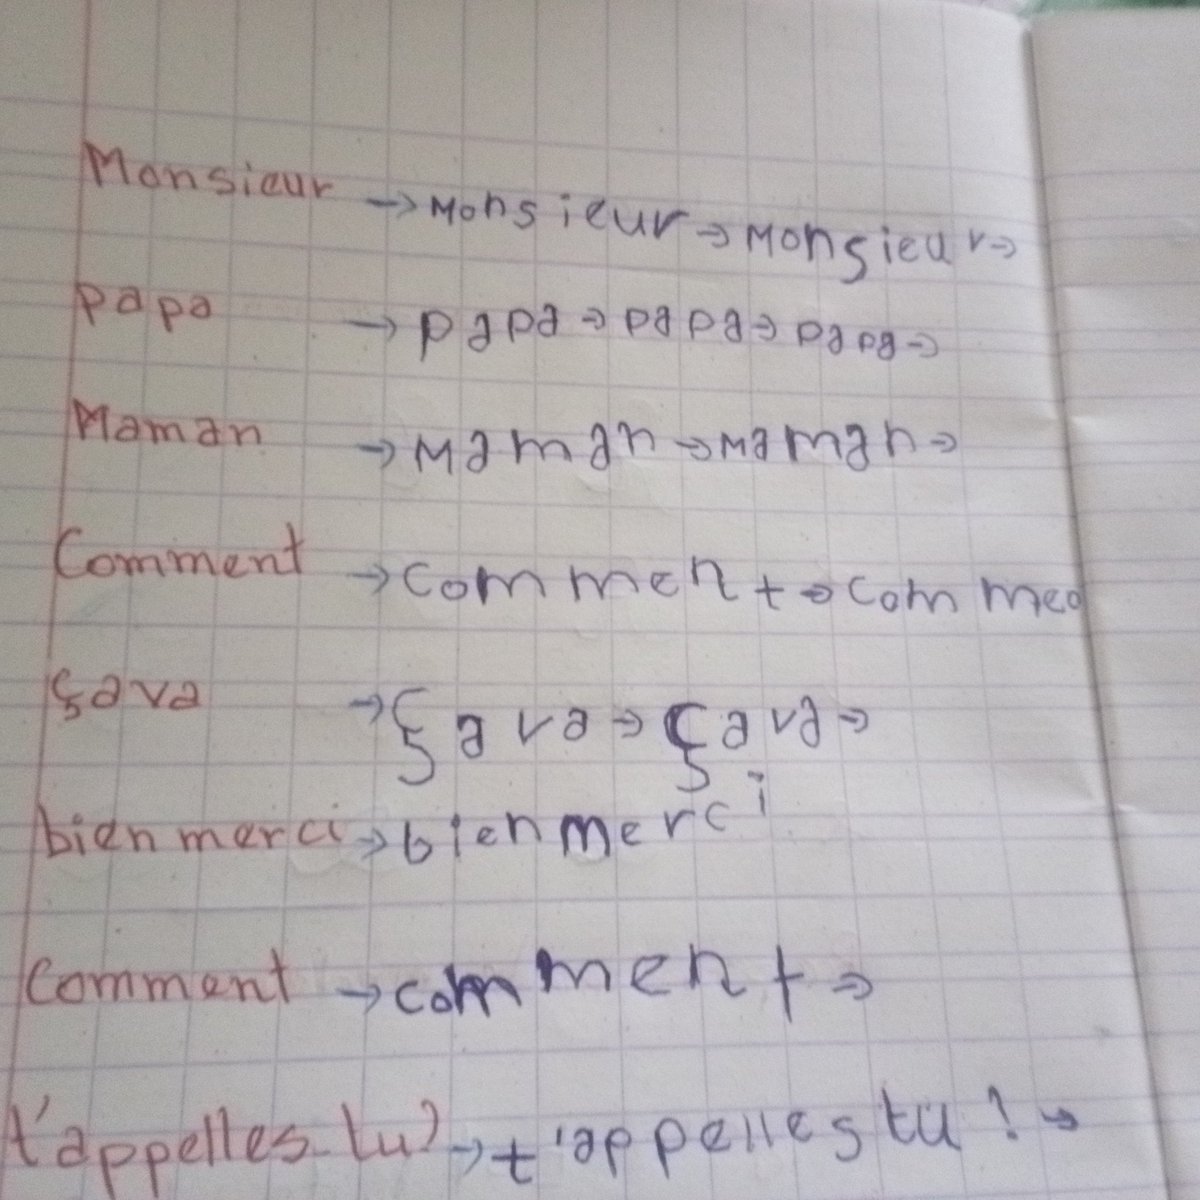 Monsieur → Monsieur → Monsieur →
papa → papa → papa → papa →
Maman → Maman → Maman →
Comment → comment → comme
çava → çava → çava →
bien merci → bien merci
Comment → comment →
t'appelles-tu? → t'appelles tu? →